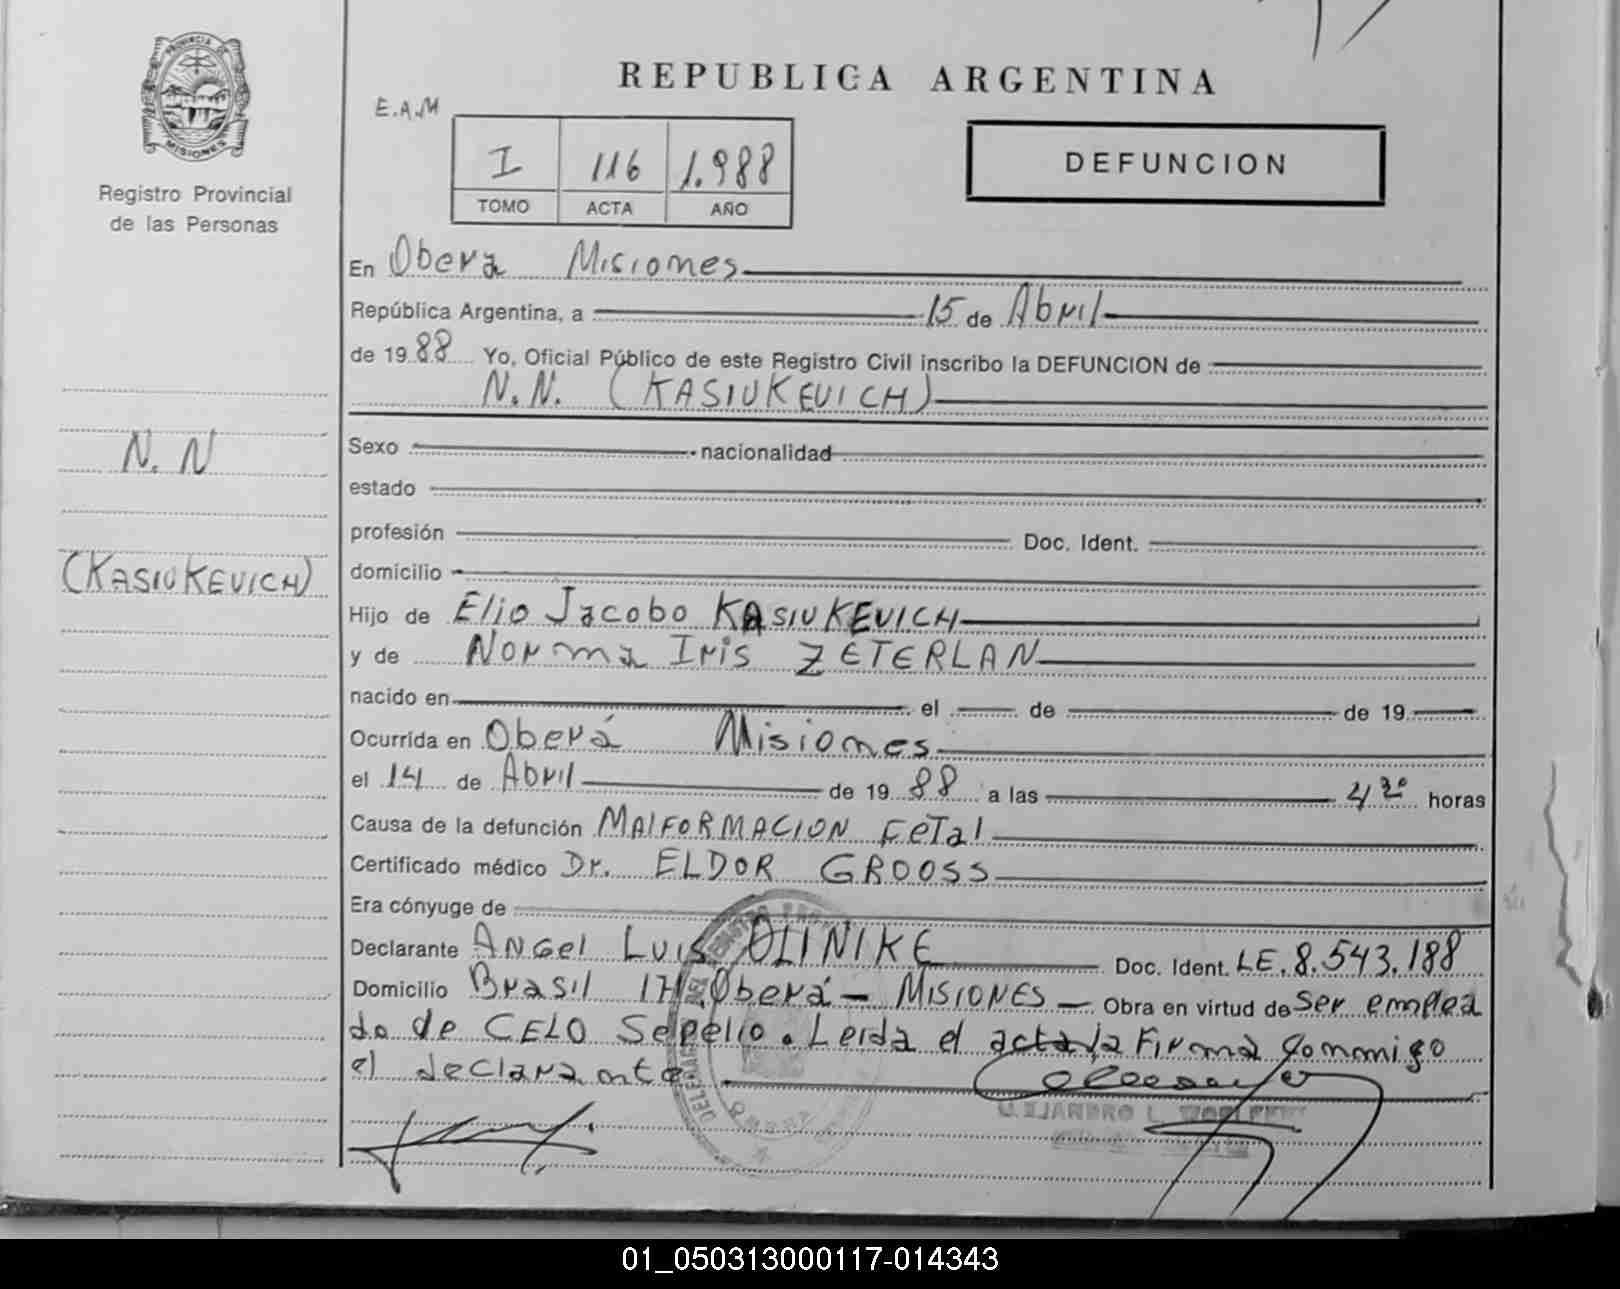 PROVINCIA DE
MISIONES
Registro Provincial
de las Personas
REPUBLICA ARGENTINA
E.A.M
I 116 1.988
TOMO ACTA AÑO
DEFUNCION
En Obera Misiones
República Argentina, a 15 de Abril
de 1988 Yo, Oficial Público de este Registro Civil inscribo la DEFUNCION de
N.N. (KASIUKEVICH)
N. N
(KASIUKEVICH)
Sexo nacionalidad
estado
profesión Doc. Ident.
domicilio
Hijo de Elio Jacobo KASIUKEVICH
y de Norma Iris ZETERLAN
nacido en el de de 19
Ocurrida en Oberá Misiones
el 14 de Abril de 1988 a las 4 30 horas
Causa de la defunción MAlFORMACION FeTal
Certificado médico Dr. ELDOR GROOSS
Era cónyuge de
Declarante ANGel LUIS OLINIKE Doc. Ident. LE. 8.543.188
Domicilio Brasil 171 Oberá - MISIONES - Obra en virtud de Ser emplea
do de CELO Sepelio. Leida el acta la Firma Conmigo
el declarante
01_050313000117-014343